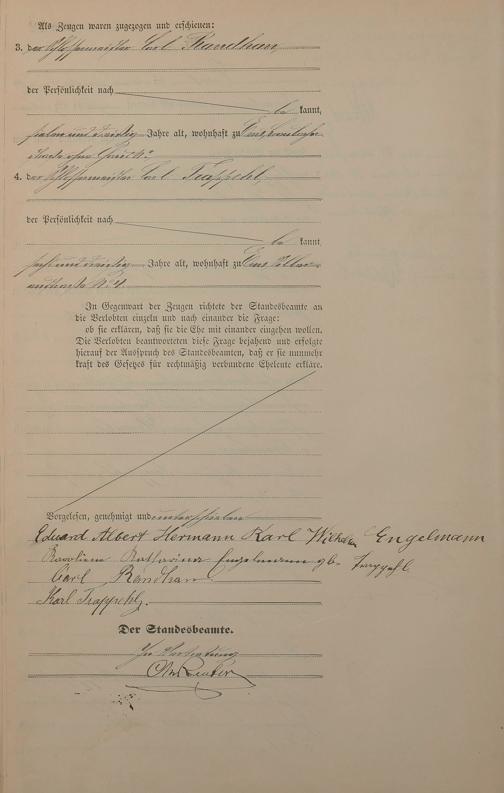 Als Zeugen waren zugezogen und erschienen:
3. der Schlossermeister Carl Randhan,
der Persönlichkeit nach
be kannt,
Jahre alt, wohnhaft zu
4. der Schlossermeister Carl Trappehl,
der Persönlichkeit nach
be kannt,
sechsunddreißig Jahre alt, wohnhaft zu
In Gegenwart der Zeugen richtete der Standesbeamte an
die Verlobten einzeln und nach einander die Frage:
ob sie erklären, daß sie die Ehe mit einander eingehen wollen.
Die Verlobten beantworteten diese Frage bejahend und erfolgte
hierauf der Ausspruch des Standesbeamten, daß er sie nunmehr
kraft des Gesetzes für rechtmäßig verbundene Eheleute erkläre.
Vorgelesen, genehmigt und unterschrieben
Eduard Albert Hermann Karl Wilhelm Engelmann
Karoline Katharina Engelmann gb. Trappehl
Carl Randhan
Karl Trappehl.
Der Standesbeamte.
In Vertretung